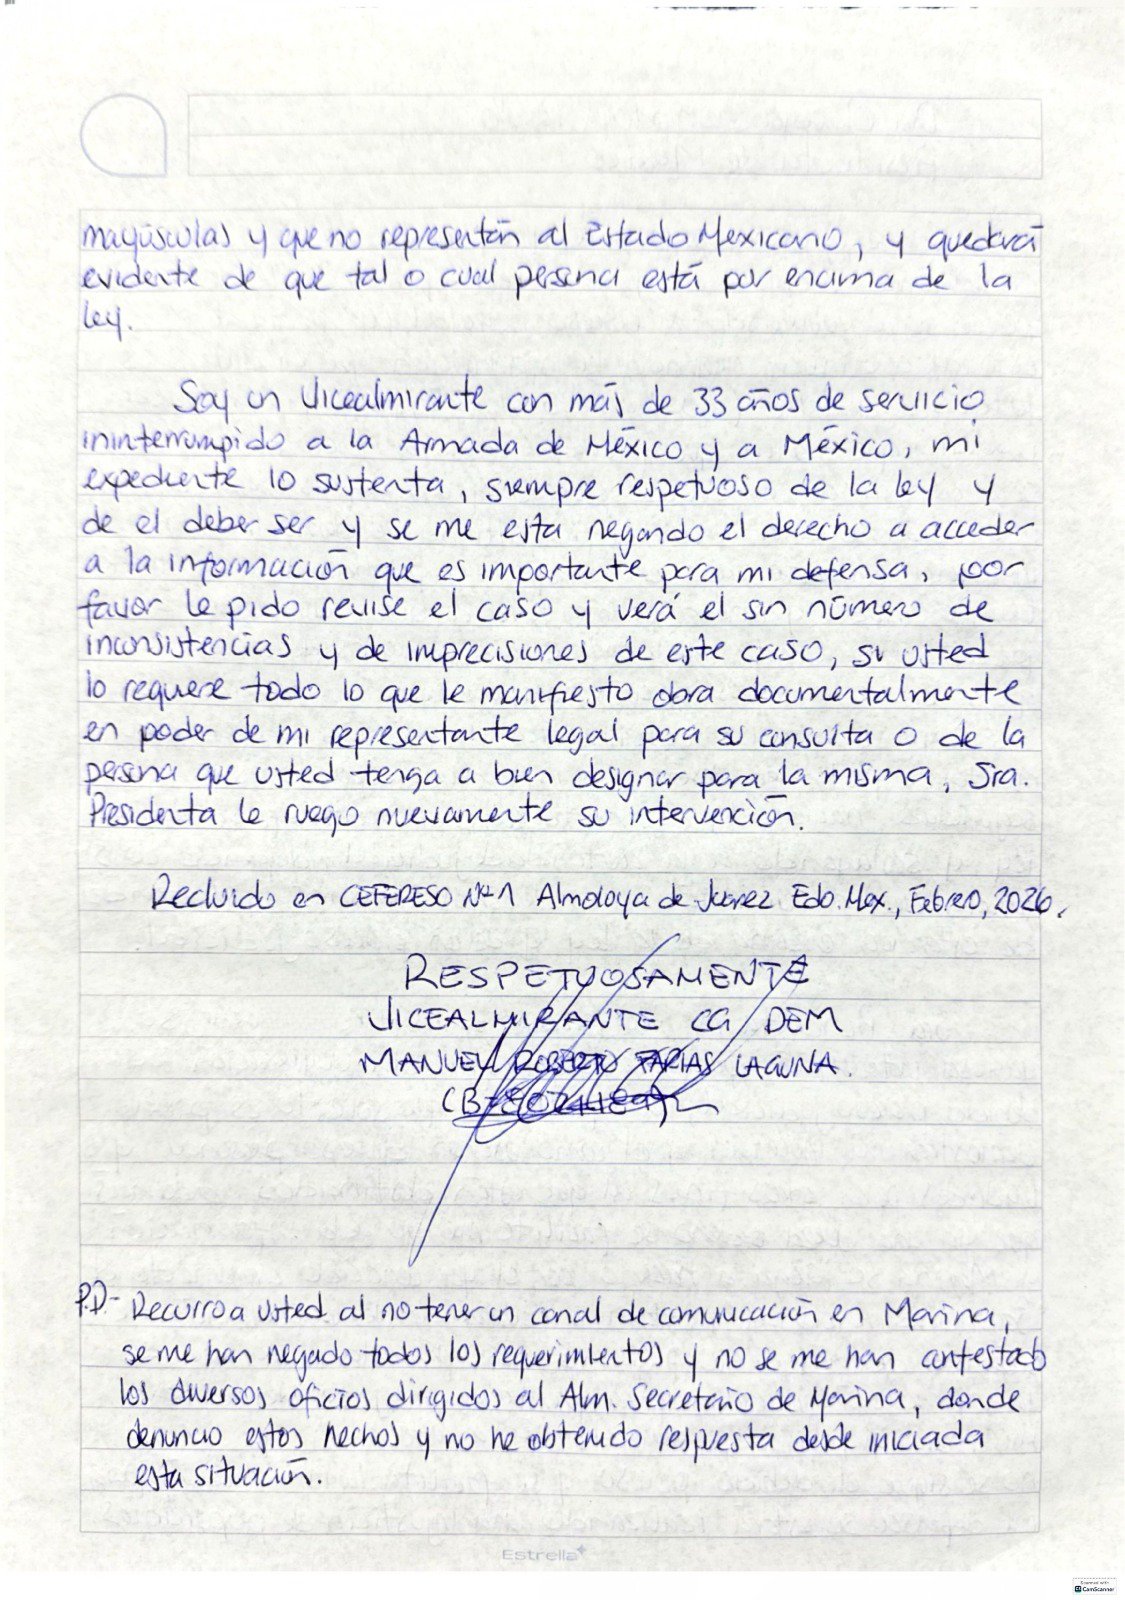 mayúsculas y que no representan al Estado Mexicano, y quedará
evidente de que tal o cual persona está por encima de la
ley.
Soy un Vicealmirante con más de 33 años de servicio
ininterrumpido a la Armada de México y a México, mi
expediente lo sustenta, siempre respetuoso de la ley y
de el deber ser y se me esta negando el derecho a acceder
a la información que es importante para mi defensa, por
favor le pido revise el caso y verá el sin número de
inconsistencias y de imprecisiones de este caso, si usted
lo requiere todo lo que le manifiesto obra documentalmente
en poder de mi representante legal para su consulta o de la
persona que usted tenga a bien designar para la misma, Sra.
Presidenta le ruego nuevamente su intervención.
Recluido en CEFERESO Nº 1 Almoloya de Juárez Edo. Mex., Febrero, 2026.
RESPETUOSAMENTE
VICEALMIRANTE CG DEM
MANUEL ROBERTO FARIAS LAGUNA.
P.D.- Recurro a usted al no tener un canal de comunicación en Marina,
se me han negado todos los requerimientos y no se me han contestado
los diversos oficios dirigidos al Alm. Secretario de Marina, donde
denuncio estos hechos y no he obtenido respuesta desde iniciada
esta situación.
Estrella
Scanned with
CamScanner